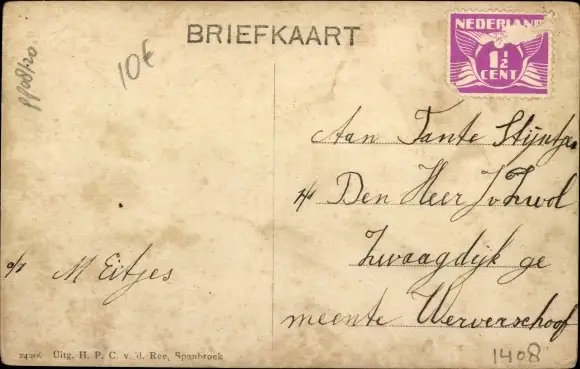 BRIEFKAART
10€
NEDERLAND
1½
CENT
Aan Tante Stijntje
p/a Den Heer J v Zwol
Zwaagdijk ge
meente Wervershoof
o/z M Eitjes
Uitg. H. P. C. v. d. Ree, Spanbroek
1408